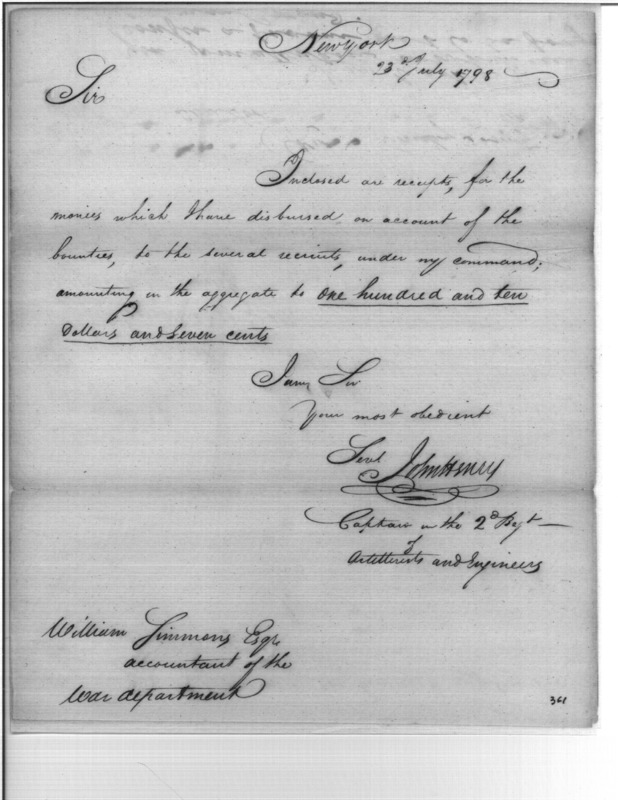 New York
23d July 1798
Sir
Inclosed are receipts, for the
monies which I have disbursed on account of the
bounties, to the several recruits, under my command;
amounting in the aggregate to one hundred and ten
Dollars and Seven cents
I am, Sir
Your most obedient
Servt John Henry
Captain in the 2d Regt
of
Artillerists and Engineers
William Simmons Esqr
accountant of the
War department
361